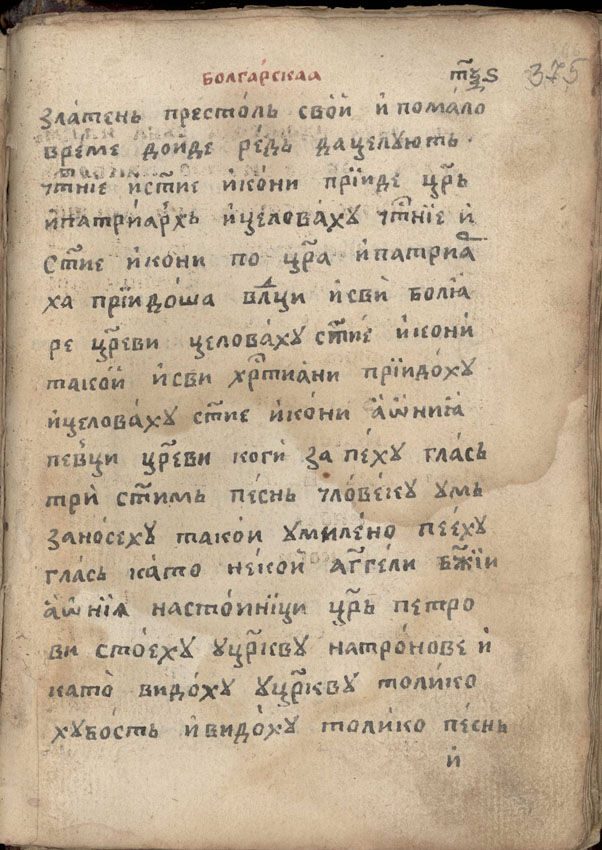 болга́рскаѧ
т҃ѯ҃ѕ 375
зла́тень престо́ль сво́й и҆ пома́ло
време до́йде ре́дь да целу́ють
чт҃ніе и҆ ст҃іе и҆ко́ни прїиде цр҃ь
и҆ патри́архь и҆ целова́ху чт҃нїе и҆
ст҃іе и҆ко́ни по цр҃а и҆ патриа
ха прїидо́ша вл҃ци и҆ сви болїа
ре цр҃еви целова́ху ст҃іе и҆кони
тако́й и҆ сви хрт҃иани прїидо́ху
и҆ целова́ху ст҃іе и҆ко́ни а҆ ѡ҆нїѧ
певци цр҃еви коги запе́ху глась
три ст҃имь песнь чло́ве́ку умь
зано́сеху тако́й умиле́но пее́ху
глась ка́то не́кои а҆гг҃ели бж҃їи
а҆ ѡ҆нїѧ насто́иници цр҃ь петро
ви сто́еху у цр҃кву на тро́нове и҆
като видо́ху у цр҃кву толи́ко
ху́бость и҆ видо́ху толи́ко пе́снь
и҆